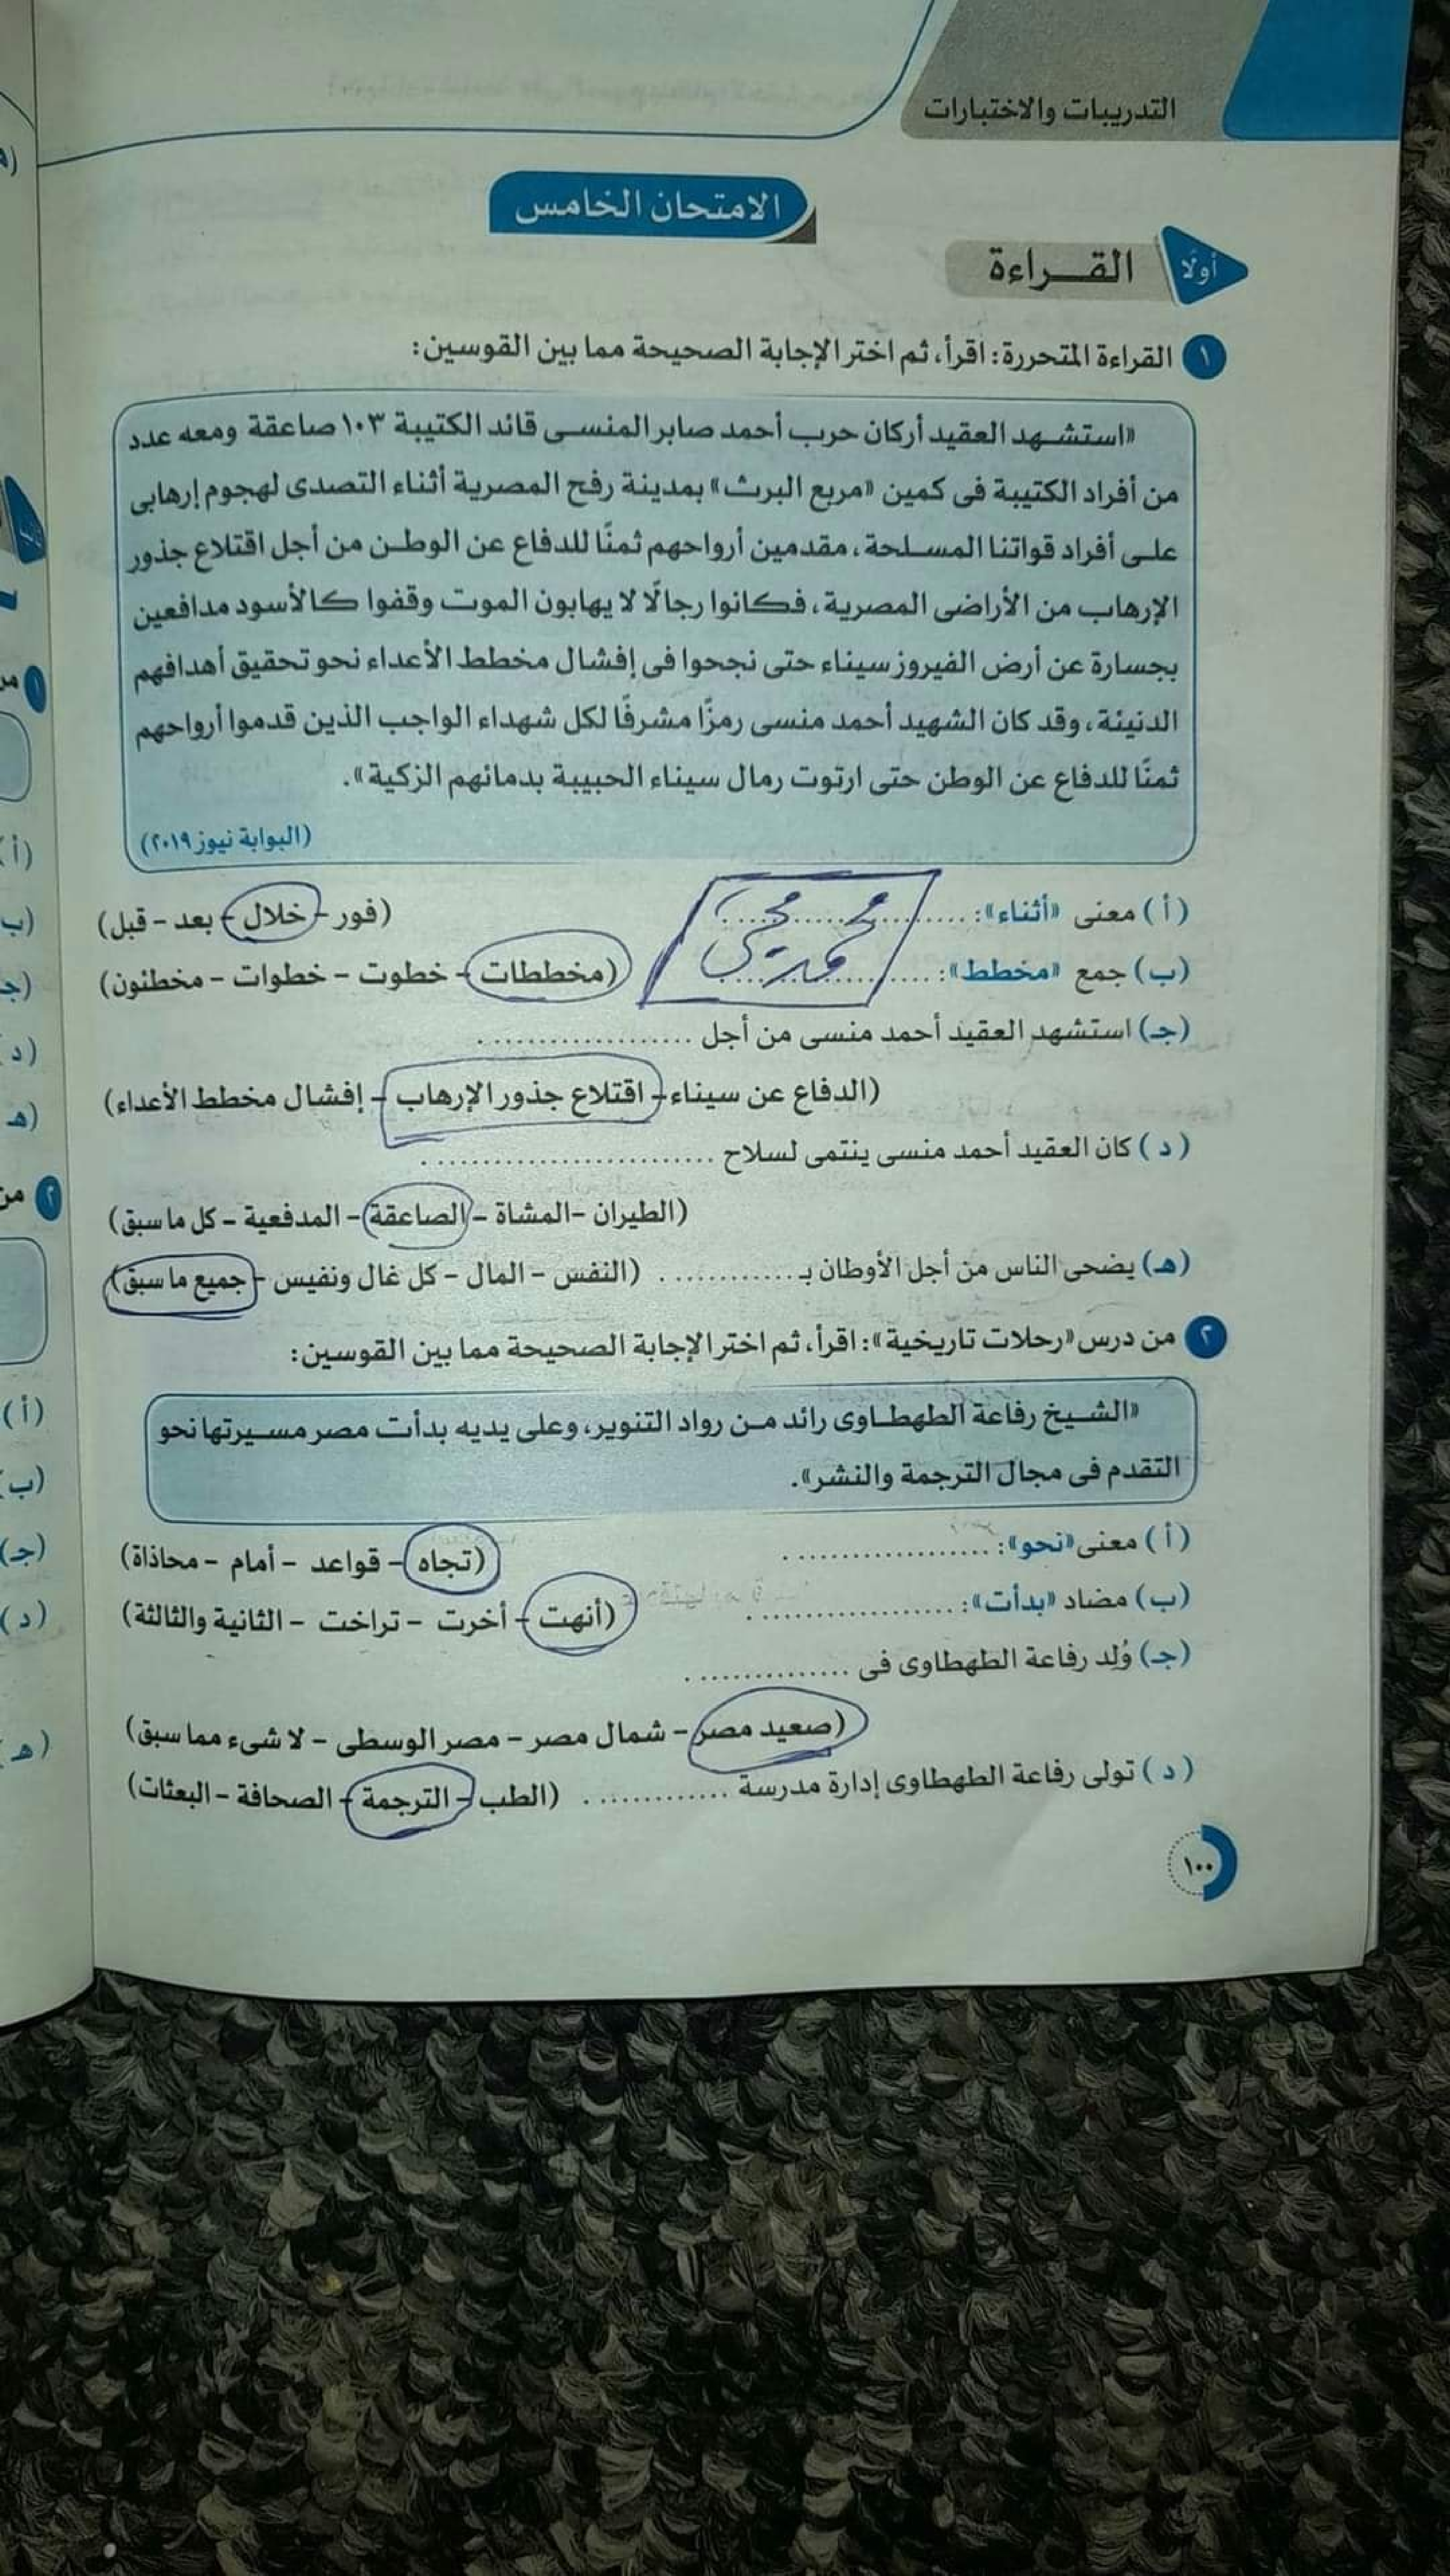 التدريبات والاختبارات
الامتحان الخامس
أولًا
القـــراءة
١ القراءة المتحررة: اقرأ، ثم اختر الإجابة الصحيحة مما بين القوسين:
«استشهد العقيد أركان حرب أحمد صابر المنسى قائد الكتيبة ١٠٣ صاعقة ومعه عدد
من أفراد الكتيبة فى كمين «مربع البرث» بمدينة رفح المصرية أثناء التصدى لهجوم إرهابى
على أفراد قواتنا المسلحة، مقدمين أرواحهم ثمنًا للدفاع عن الوطن من أجل اقتلاع جذور
الإرهاب من الأراضى المصرية، فكانوا رجالًا لا يهابون الموت وقفوا كالأسود مدافعين
بجسارة عن أرض الفيروز سيناء حتى نجحوا فى إفشال مخطط الأعداء نحو تحقيق أهدافهم
الدنيئة، وقد كان الشهيد أحمد منسى رمزًا مشرفًا لكل شهداء الواجب الذين قدموا أرواحهم
ثمنًا للدفاع عن الوطن حتى ارتوت رمال سيناء الحبيبة بدمائهم الزكية».
(البوابة نيوز ٢٠١٩)
(أ) معنى «أثناء»: .................... (فور - خلال - بعد - قبل)
(ب) جمع «مخطط»: .................... (مخططات - خطوت - خطوات - مخطئون)
(جـ) استشهد العقيد أحمد منسى من أجل ....................
(الدفاع عن سيناء - اقتلاع جذور الإرهاب - إفشال مخطط الأعداء)
(د) كان العقيد أحمد منسى ينتمى لسلاح ..........................
(الطيران - المشاة - الصاعقة - المدفعية - كل ما سبق)
(هـ) يضحى الناس من أجل الأوطان بـ ............ (النفس - المال - كل غال ونفيس - جميع ما سبق)
٢ من درس «رحلات تاريخية»: اقرأ، ثم اختر الإجابة الصحيحة مما بين القوسين:
«الشيخ رفاعة الطهطاوى رائد من رواد التنوير، وعلى يديه بدأت مصر مسيرتها نحو
التقدم فى مجال الترجمة والنشر».
(أ) معنى «نحو»: .................... (تجاه - قواعد - أمام - محاذاة)
(ب) مضاد «بدأت»: .................... (أنهت - أخرت - تراخت - الثانية والثالثة)
(جـ) وُلد رفاعة الطهطاوى فى ...............
(صعيد مصر - شمال مصر - مصر الوسطى - لا شىء مما سبق)
(د) تولى رفاعة الطهطاوى إدارة مدرسة ............. (الطب - الترجمة - الصحافة - البعثات)
١٠٠